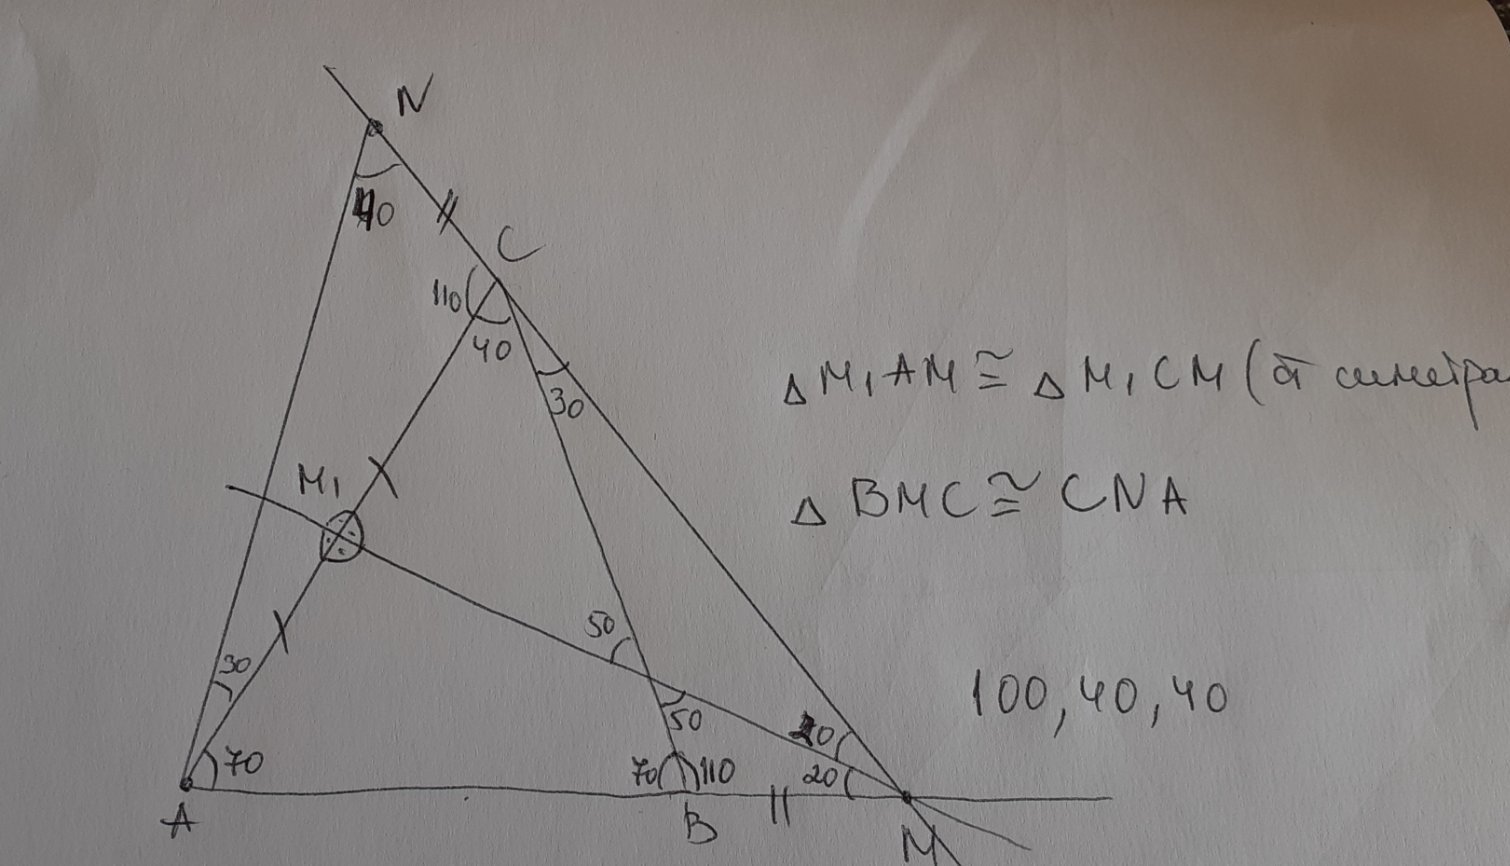 N
40
C
110
40
30
M₁
50
30
50
70
70
110
20
20
A
B
M
△ M₁AM ≅ △ M₁CM (от
△ BMC ≅ CNA
100, 40, 40